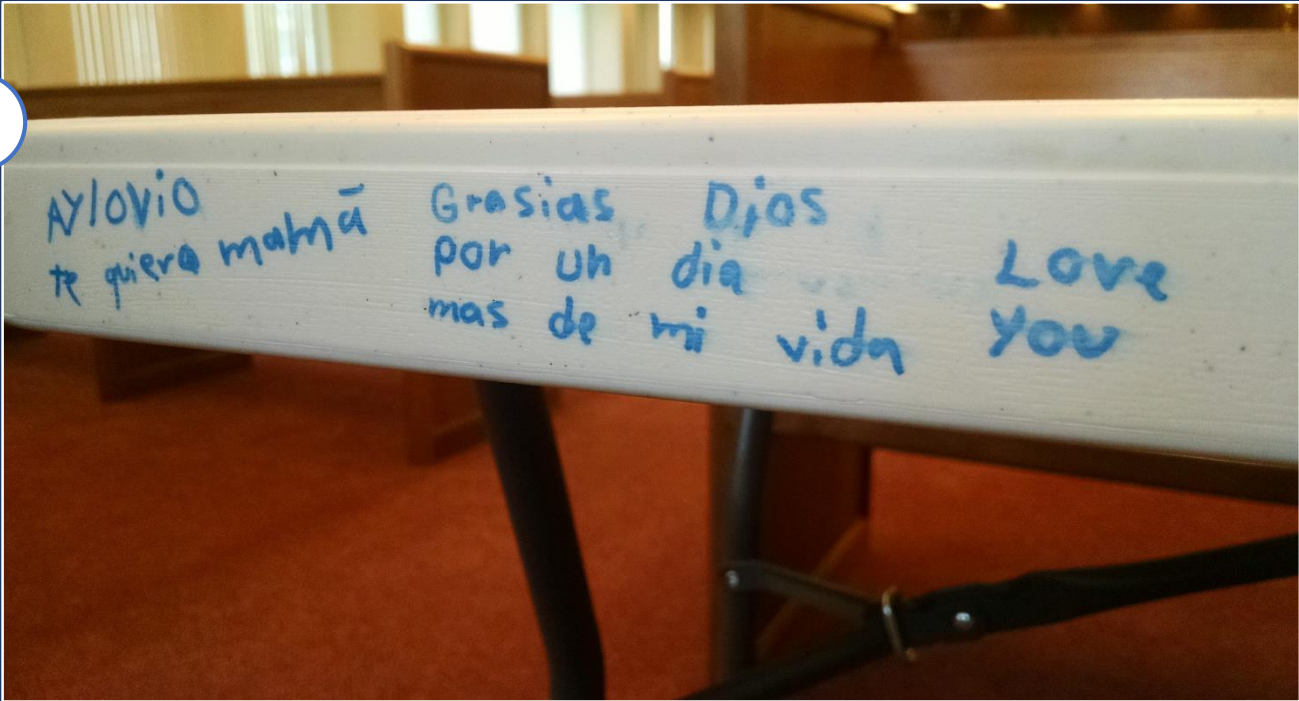 AYlovio
te quiero mamá
Grasias Dios
por un dia
mas de mi vida
Love
you